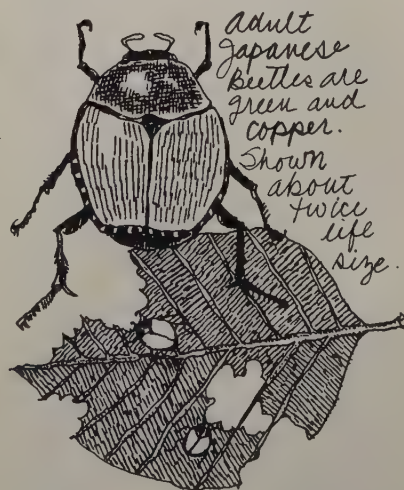 adult
Japanese
Beetles are
green and
copper.
Shown
about
twice
life
size.